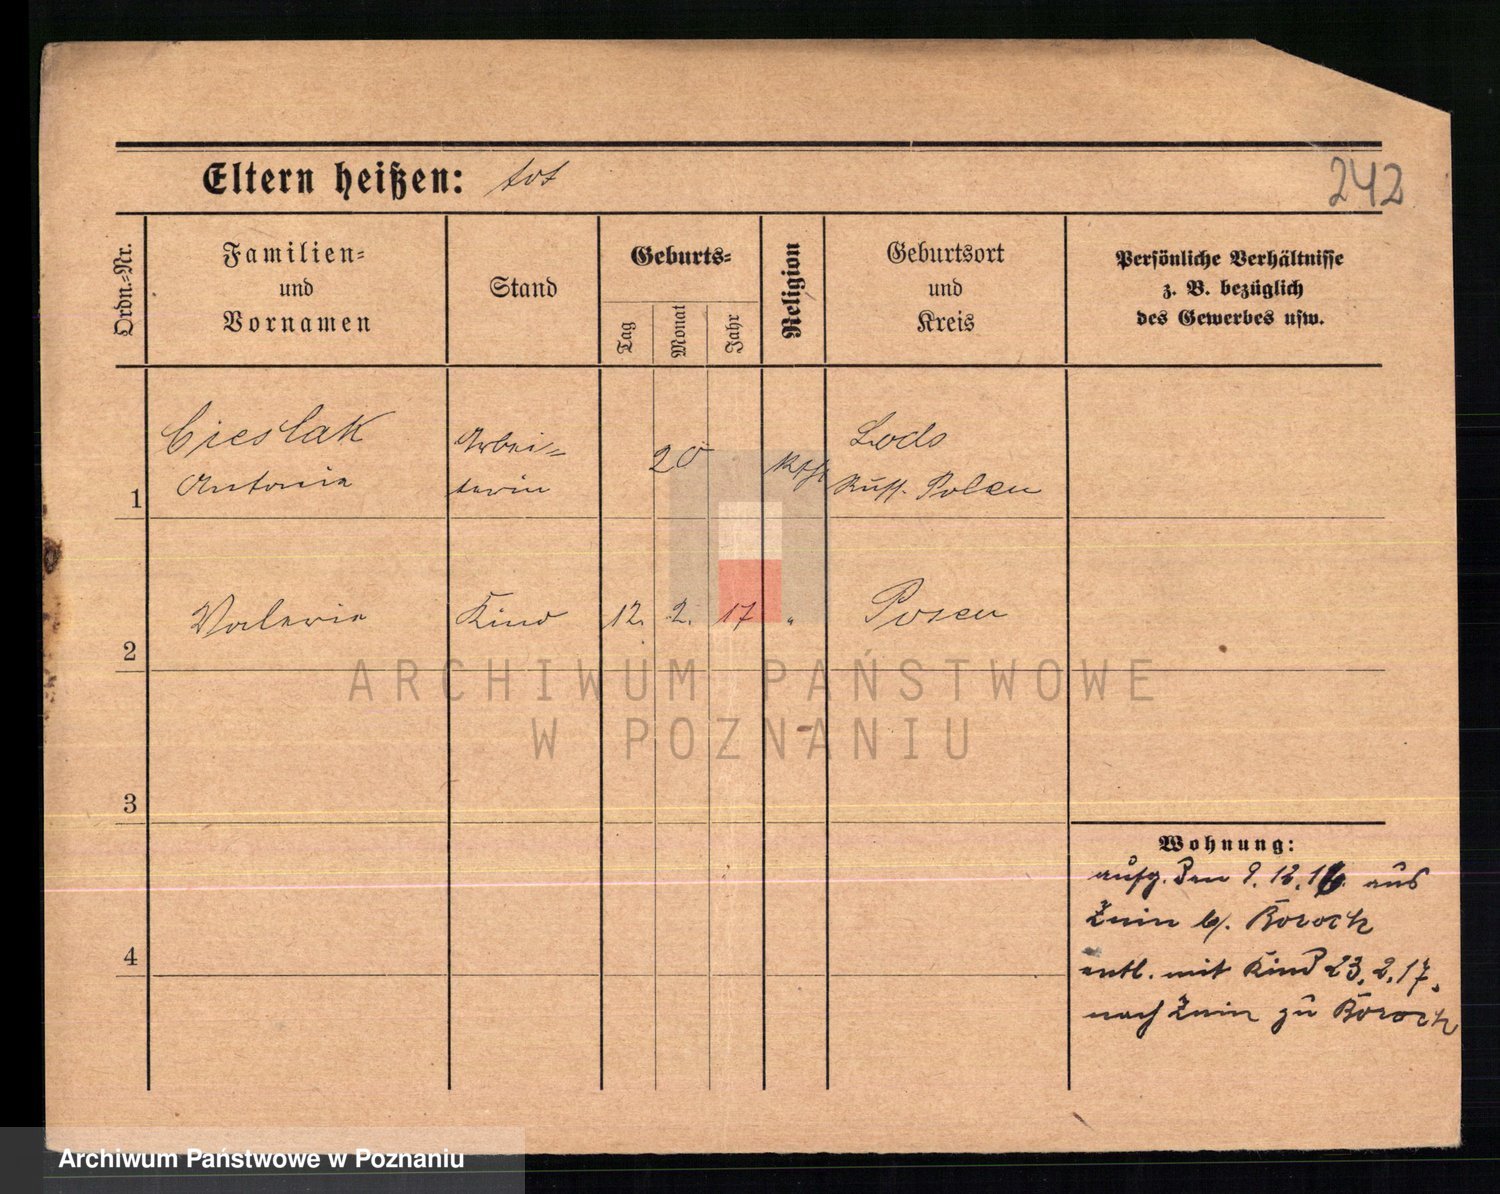 Eltern heißen: tot
242
Ordn.-Nr.
Familien-
und
Vornamen
Stand
Geburts-
Tag
Monat
Jahr
Religion
Geburtsort
und
Kreis
Persönliche Verhältnisse
z. B. bezüglich
des Gewerbes usw.
1
Cieslak
Antonie
Arbei-
terin
20
kth
Lods
Russ. Polen
2
Valerie
Kind
12. 2. 17
"
Posen
3
4
Wohnung:
aufg. den 9.12.16. aus
Znin b/.
entl. mit Kind 23.2.17.
nach Znin zu
ARCHIWUM PAŃSTWOWE
W POZNANIU
Archiwum Państwowe w Poznaniu